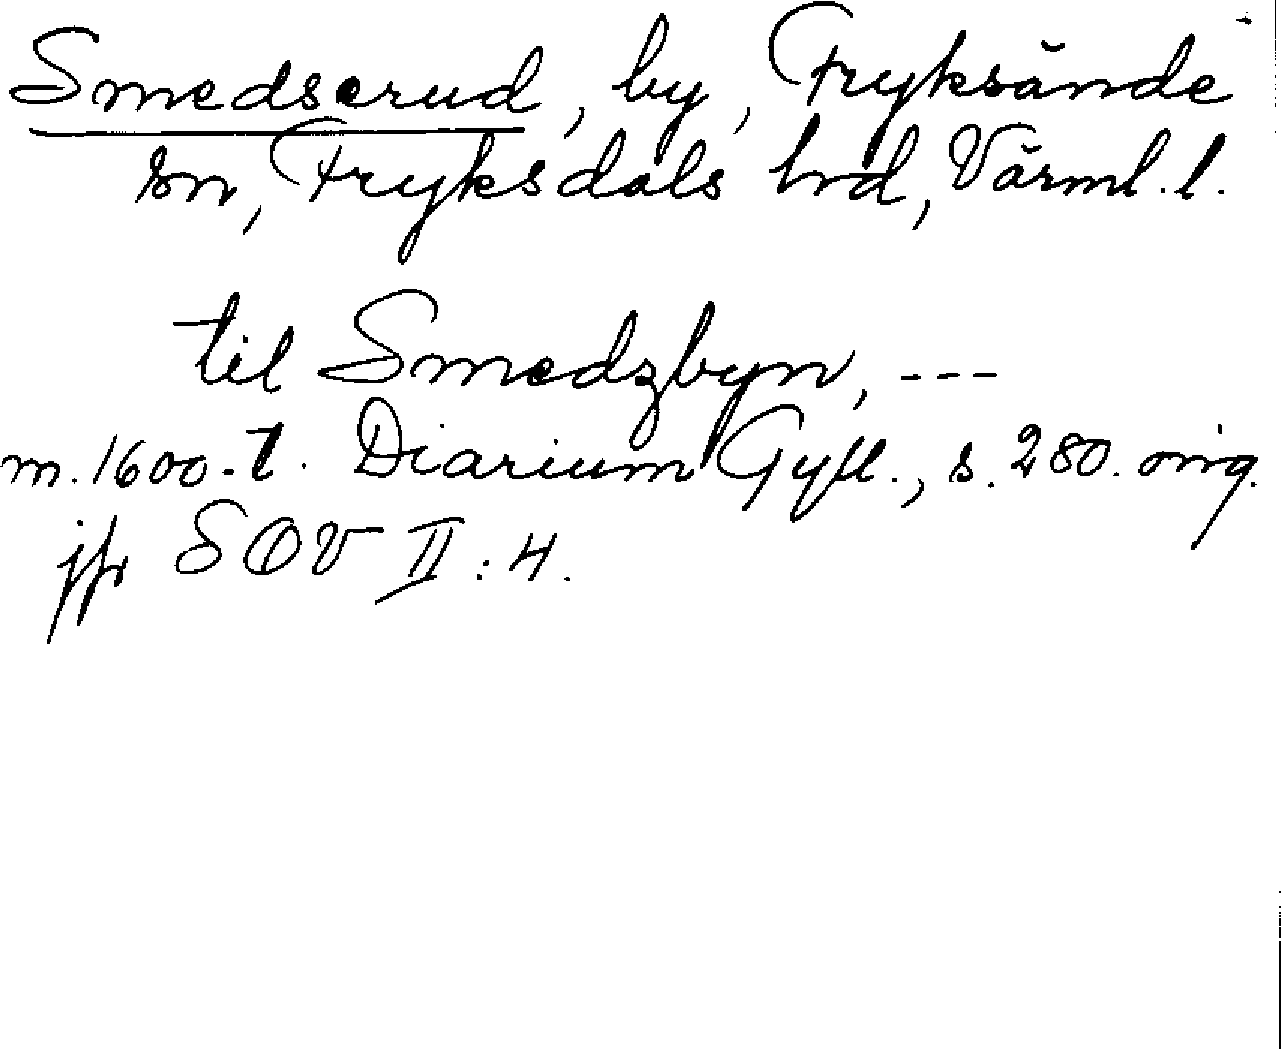 Smedserud, by, Fryksände
sn, Fryksdals hrd, Värml. l.
til Smedzbyn, ---
m. 1600-t. Diarium Gyll., s. 280. orig.
jfr SOV II: 4.